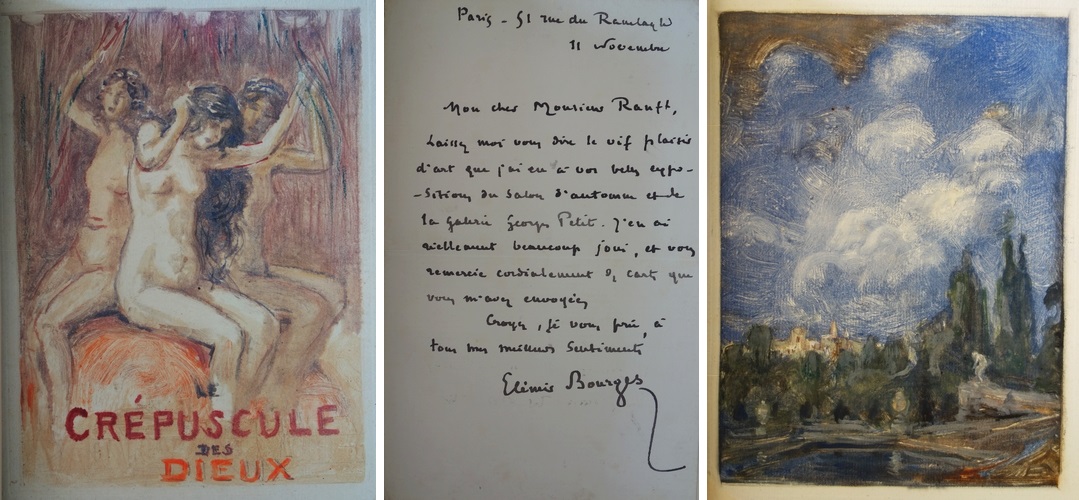 LE
CRÉPUSCULE
DES
DIEUX
Paris - 51 rue du Ranelagh
11 Novembre
Mon cher Monsieur Ranft,
Laissez moi vous dire le vif plaisir
d'art que j'ai eu à vos belles expo-
-sitions du Salon d'automne et de
la galerie Georges Petit. J'en ai
réellement beaucoup joui, et vous
remercie cordialement des cartes que
vous m'avez envoyées
Croyez, je vous prie, à
tous mes meilleurs sentiments
Elémir Bourges